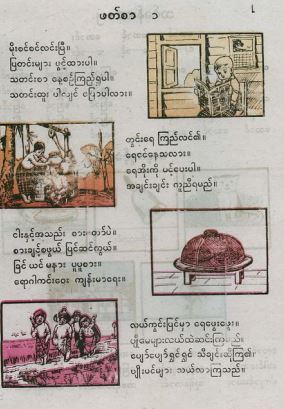 ဖတ်စာ ၁
မိုးစင်စင်လင်းပြီ။
ပြတင်းများ ပွင့်ထားပါ။
သတင်းစာ နေ့စဉ်ကြည့်ရှုပါ။
သတင်းထူး ပါလျှင် ပြောပါလား။
တွင်းရေ ကြည်လင်၏။
ရေငင်နေသလား။
ရေအိုးကို ပင့်ပေးပါ။
အချင်းချင်း ကူညီရမည်။
ငါးနှင့်အသည်း စား
စားချင့်စဖွယ် ပြင်ဆင်ကွယ်။
ခြင် ယင် မနား ပူပူစား။
ရောဂါကင်းဝေး ကျန်းမာရေး။
လယ်ကွင်းပြင်မှာ ရေဖွေးဖွေး။
ပျိုမေများလယ်ထဲဆင်း
ပျော်ပျော်ရွှင်ရွှင် သီချင်းဆိုကြ၏။
ပျိုးပင်များ